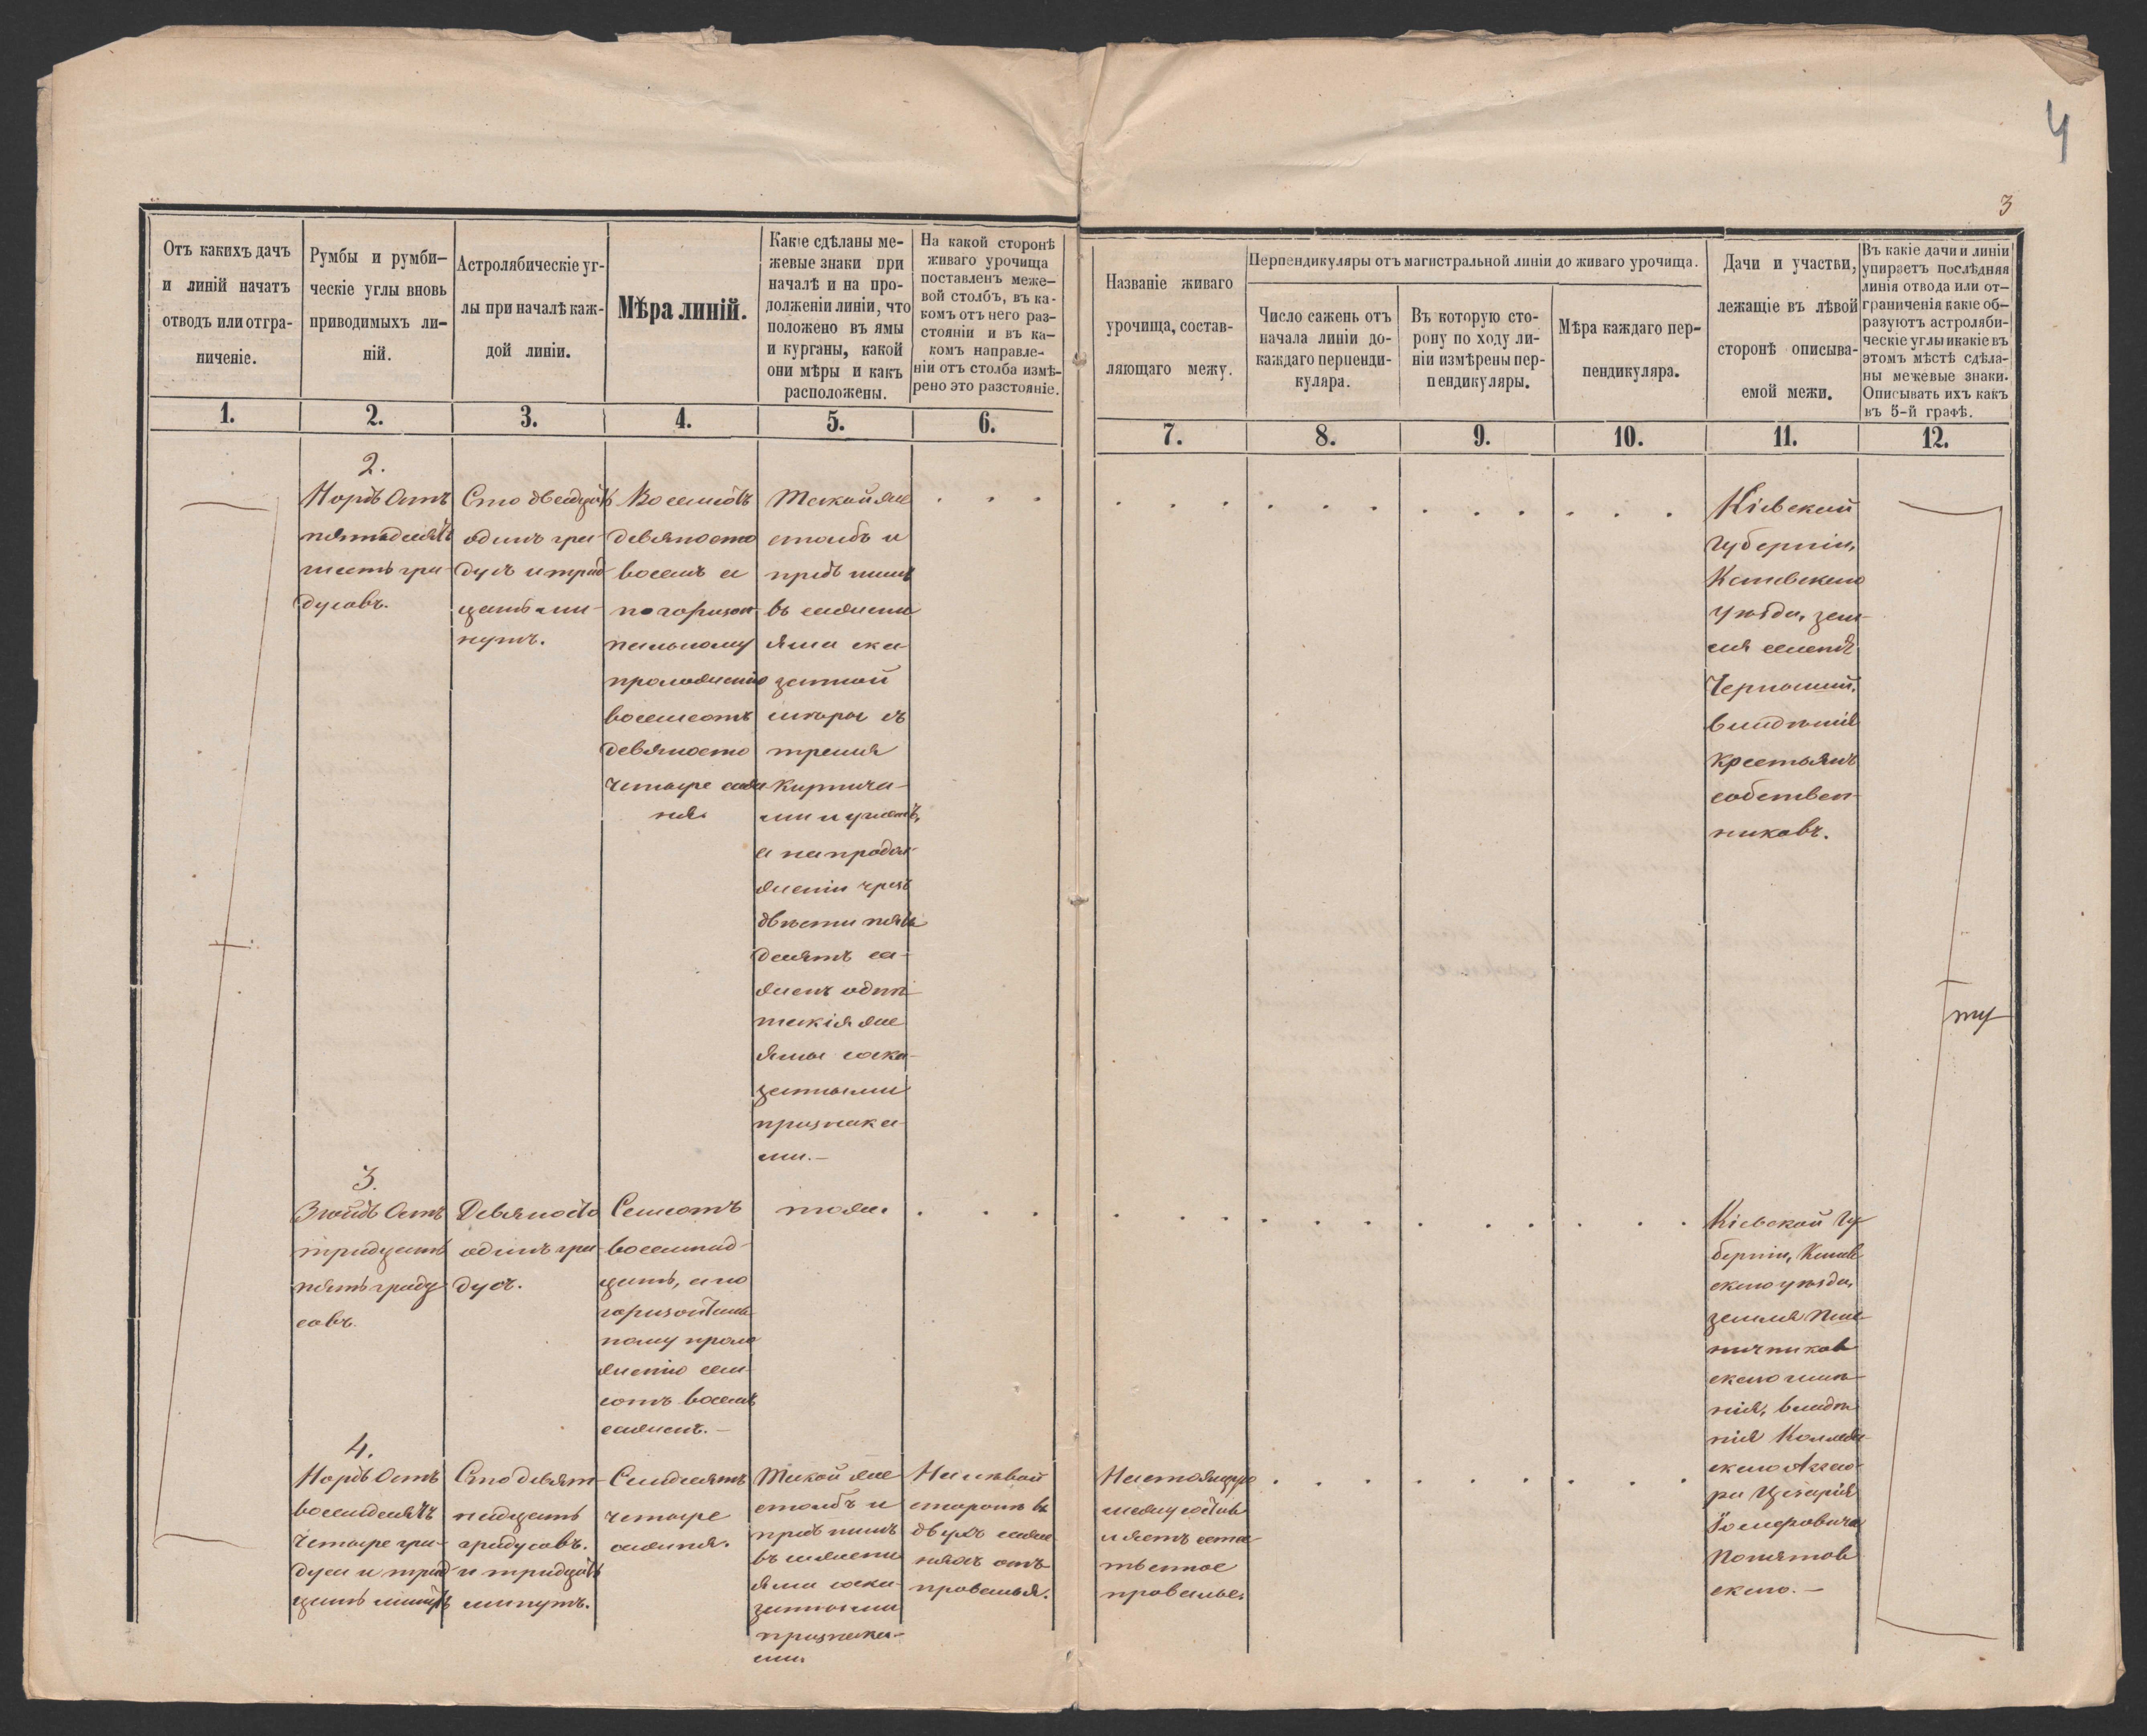 4
3
Отъ какихъ дачъ
и линій начатъ
отводъ или отгра-
ниченіе.
Румбы и румби-
ческіе углы вновь
приводимыхъ ли-
ній.
Астролябическіе уг-
лы при началѣ каж-
дой линіи.
Мѣра линій.
Какіе сдѣланы ме-
жевые знаки при
началѣ и на про-
долженіи линіи, что
положено въ ямы
и курганы, какой
они мѣры и какъ
расположены.
На какой сторонѣ
живаго урочища
поставленъ меже-
вой столбъ, въ ка-
комъ отъ него раз-
стояніи и въ ка-
комъ направле-
ніи отъ столба измѣ-
рено это разстояніе.
Названіе живаго
урочища, состав-
ляющаго межу.
Перпендикуляры отъ магистральной линіи до живаго урочища.
Число сажень отъ
начала линіи до-
каждаго перпенди-
куляра.
Въ которую сто-
рону по ходу ли-
ніи измѣрены пер-
пендикуляры.
Мѣра каждаго пер-
пендикуляра.
Дачи и участки,
лежащіе въ лѣвой
сторонѣ описыва-
емой межи.
Въ какіе дачи и линіи
упираетъ послѣдняя
линія отвода или от-
граниченія какіе об-
разуютъ астроляби-
ческіе углы и какіе въ
этомъ мѣстѣ сдѣла-
ны межевые знаки.
Описывать ихъ какъ
въ 5-й графѣ.
1. 2. 3. 4. 5. 6. 7. 8. 9. 10. 11. 12.
2.
Нордъ Остъ
пятьдесятъ
шесть гра-
дусовъ.
Сто двадцать
одинъ гра-
дусъ и трид-
цать ми-
нутъ.
Восемсотъ
девяносто
восемь а
по горизон-
тальному
проложенію
восемсотъ
девяносто
четыре саже-
ня.
Такой же
столбъ и
предъ нимъ
въ сажени
яма ска-
занной
мѣры съ
тремя
кирпича-
ми и углемъ,
а на продол-
женіи чрезъ
двѣсти пять
десятъ са-
жень однѣ
такія же
ямы съ ска-
занными
признака-
ми.-
Кіевской
губерніи,
Каневскаго
уѣзда, зем-
ля селенія
владѣнія
крестьянъ
собствен-
никовъ.
3.
Зюйдъ Остъ
тридцать
пять граду
совъ.
Девяносто
одинъ гра-
дусъ.
Семсотъ
восемнад-
цать, а по
горизонталь-
ному проло-
женію сем-
сотъ восемь
сажень.-
тоже.
Кіевской Гу-
берніи, Канев-
скаго уѣзда,
земля
скаго имѣ-
нія, владѣ-
нія
4.
Нордъ Остъ
восемдесятъ
четыре гра-
дуса и трид-
цать минутъ
Сто девят-
надцать
градусовъ.
и тридцать
минутъ.
Семдесятъ
четыре
сажня.
Такой же
столбъ и
предъ нимъ
въ сажени
яма съ ска-
занными
признака-
ми.
На лѣвой
сторонѣ въ
двухъ саже-
няхъ отъ
провалья.
Настоящую
межу состав-
ляетъ есте-
твенное
провалье.